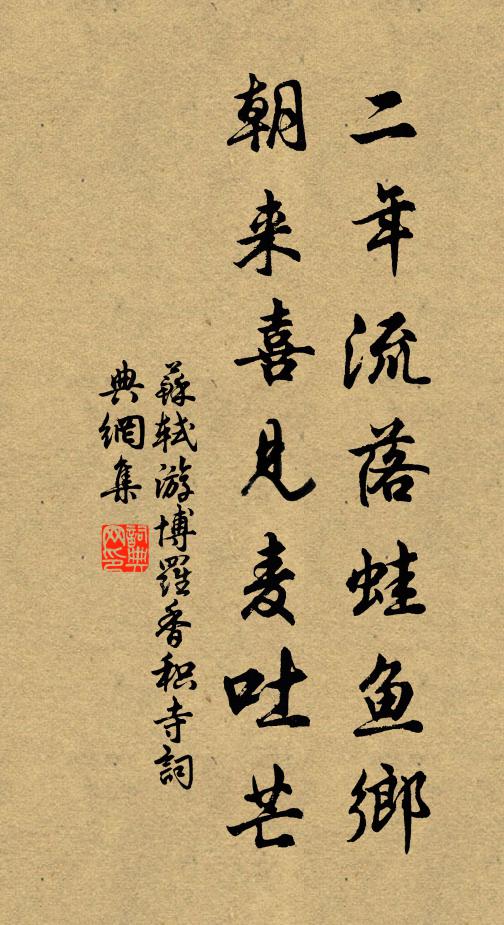 二年流落蛙鱼鄉
朝来喜見麦吐芒
蘇軾游博羅香积寺詞
典網集
詞典网印